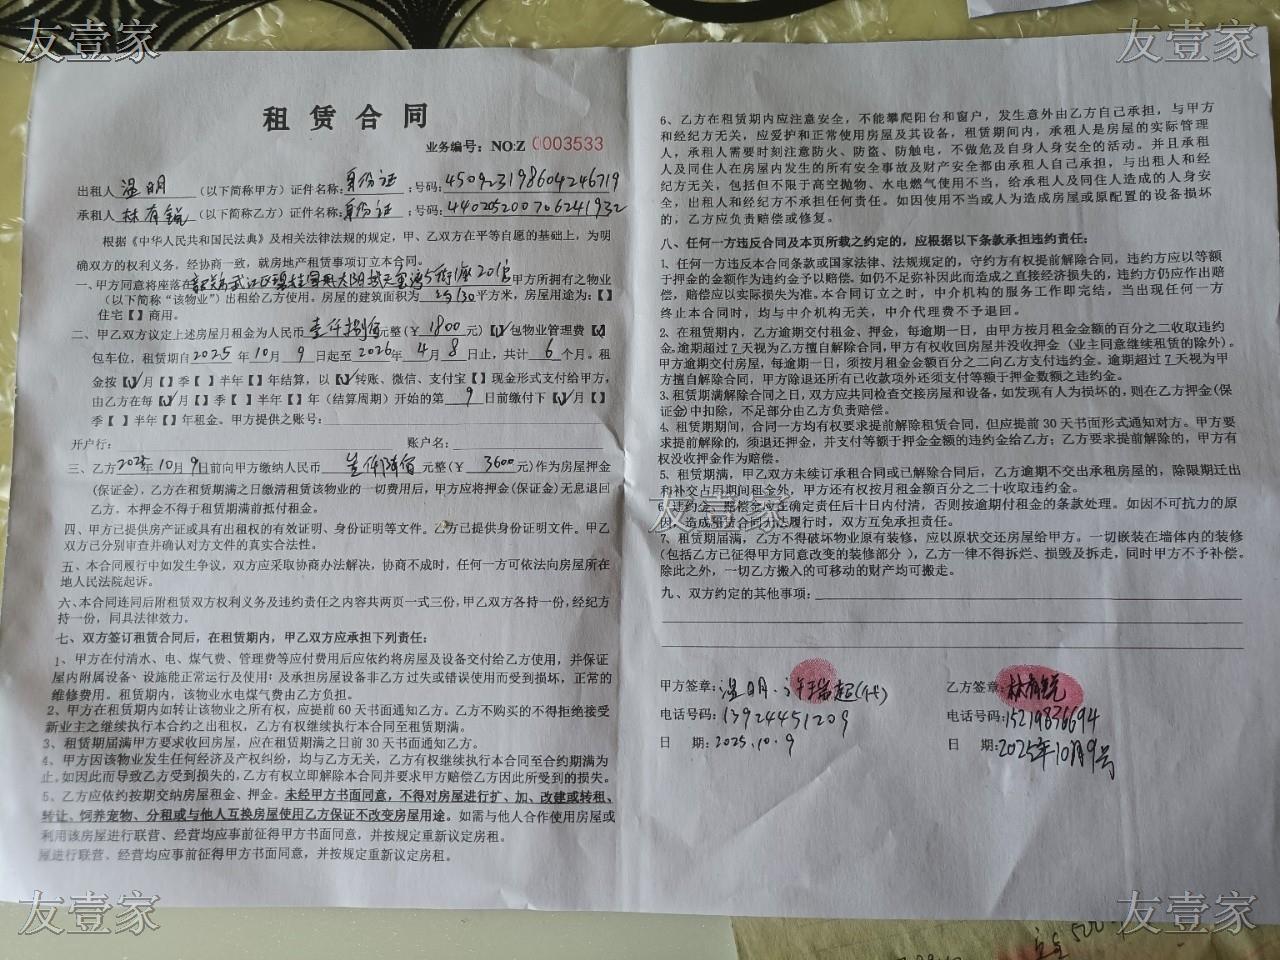 友壹家
友壹家
租赁合同
业务编号：NO:Z 0003533
出租人 温明 （以下简称甲方）证件名称：身份证；号码：450923198604246719
承租人 林有锐 （以下简称乙方）证件名称：身份证；号码：440205200706241932
根据《中华人民共和国民法典》及相关法律法规的规定，甲、乙双方在平等自愿的基础上，为明
确双方的权利义务，经协商一致，就房地产租赁事项订立本合同。
一、甲方同意将座落在 甲方所拥有之物业
（以下简称“该物业”）出租给乙方使用。房屋的建筑面积为 平方米，房屋用途为：【】
住宅【 】商用。
二、甲乙双方议定上述房屋月租金为人民币 壹仟捌佰 元整（￥ 1800 元）【√】包物业管理费【√】
包车位，租赁期自2025 年 10 月 9 日起至 2026年 4 月 8 日止，共计 6 个月。租
金按【√】月【 】季【 】半年【 】年结算，以【√】转账、微信、支付宝【 】现金形式支付给甲方，
由乙方在每【√】月【 】季【 】半年【 】年（结算周期）开始的第 9 日前缴付下【√】月【 】
季【 】半年【 】年租金。甲方提供之账号：
开户行： 账户名：
三、乙方2025年 10月 9日前向甲方缴纳人民币 元整（￥ 3600 元）作为房屋押金
（保证金），乙方在租赁期满之日缴清租赁该物业的一切费用后，甲方应将押金（保证金）无息退回
乙方。本押金不得于租赁期满前抵付租金。
四、甲方已提供房产证或具有出租权的有效证明、身份证明等文件。乙方已提供身份证明文件。甲乙
双方已分别审查并确认对方文件的真实合法性。
五、本合同履行中如发生争议，双方应采取协商办法解决，协商不成时，任何一方可依法向房屋所在
地人民法院起诉。
六、本合同连同后附租赁双方权利义务及违约责任之内容共两页一式三份，甲乙双方各持一份，经纪方
持一份，同具法律效力。
七、双方签订租赁合同后，在租赁期内，甲乙双方应承担下列责任：
1、甲方在付清水、电、煤气费、管理费等应付费用后应依约将房屋及设备交付给乙方使用，并保证
屋内附属设备、设施能正常运行及使用；及承担房屋设备非乙方过失或错误使用而受到损坏，正常的
维修费用。租赁期内，该物业水电煤气费由乙方负担。
2、甲方在租赁期内如转让该物业之所有权，应提前 60 天书面通知乙方。乙方不购买的不得拒绝接受
新业主之继续执行本合约之出租权，乙方有权继续执行本合同至租赁期满。
3、租赁期届满甲方要求收回房屋，应在租赁期满之日前 30 天书面通知乙方。
4、甲方因该物业发生任何经济及产权纠纷，均与乙方无关，乙方有权继续执行本合同至合约期满为
止，如因此而导致乙方受到损失的，乙方有权立即解除本合同并要求甲方赔偿乙方因此所受到的损失。
5、乙方应依约按期交纳房屋租金、押金。未经甲方书面同意，不得对房屋进行扩、加、改建或转租、
转让、饲养宠物、分租或与他人互换房屋使用乙方保证不改变房屋用途。如需与他人合作使用房屋或
利用该房屋进行联营、经营均应事前征得甲方书面同意，并按规定重新议定房租。
屋进行联营、经营均应事前征得甲方书面同意，并按规定重新议定房租。
6、乙方在租赁期内应注意安全，不能攀爬阳台和窗户，发生意外由乙方自己承担，与甲方
和经纪方无关，应爱护和正常使用房屋及其设备，租赁期间内，承租人是房屋的实际管理
人，承租人需要时刻注意防火、防盗、防触电，不做危及自身人身安全的活动。并且承租
人及同住人在房屋内发生的所有安全事故及财产安全都由承租人自己承担，与出租人和经
纪方无关，包括但不限于高空抛物、水电燃气使用不当，给承租人及同住人造成的人身安
全，出租人和经纪方不承担任何责任。如因使用不当或人为造成房屋或原配置的设备损坏
的，乙方应负责赔偿或修复。
八、任何一方违反合同及本页所载之约定的，应根据以下条款承担违约责任：
1、任何一方违反本合同条款或国家法律、法规规定的，守约方有权提前解除合同，违约方应以等额
于押金的金额作为违约金予以赔偿。如仍不足弥补因此而造成之直接经济损失的，违约方仍应作出赔
偿，赔偿应以实际损失为准。本合同订立之时，中介机构的服务工作即完结，当出现任何一方
终止本合同时，均与中介机构无关，中介代理费不予退回。
2、在租赁期内，乙方逾期交付租金、押金，每逾期一日，由甲方按月租金金额的百分之二收取违约
金。逾期超过 7 天视为乙方擅自解除合同，甲方有权收回房屋并没收押金（业主同意继续租赁的除外）。
甲方逾期交付房屋，每逾期一日，须按月租金金额百分之二向乙方支付违约金。逾期超过 7 天视为甲
方擅自解除合同，甲方除退还所有已收款项外还须支付等额于押金数额之违约金。
3、租赁期满解除合同之日，双方应共同检查交接房屋和设备，如发现有人为损坏的，则在乙方押金（保
证金）中扣除，不足部分由乙方负责赔偿。
4、租赁期期间，合同一方均有权要求提前解除租赁合同，但应提前 30 天书面形式通知对方。甲方要
求提前解除的，须退还押金，并支付等额于押金金额的违约金给乙方；乙方要求提前解除的，甲方有
权没收押金作为赔偿。
5、租赁期满，甲乙双方未续订承租合同或已解除合同后，乙方逾期不交出承租房屋的，除限期迁出
和补交占用期间租金外，甲方还有权按月租金额百分之二十收取违约金。
友壹家
6、违约金、赔偿金应在确定责任后十日内付清，否则按逾期付租金的条款处理。如因不可抗力的原
因，造成租赁合同无法履行时，双方互免承担责任。
7、租赁届满，乙方不得破坏物业原有装修，应以原状交还房屋给甲方。一切嵌装在墙体内的装修
（包括乙方已征得甲方同意改变的装修部分），乙方一律不得拆烂、损毁及拆走，同时甲方不予补偿。
除此之外，一切乙方搬入的可移动的财产均可搬走。
九、双方约定的其他事项：
甲方签章：温明. （代） 乙方签章：林有锐
电话号码：13924451209 电话号码：15219836694
日 期：2025.10.9 日 期：2025年10月9号
友壹家
友壹家